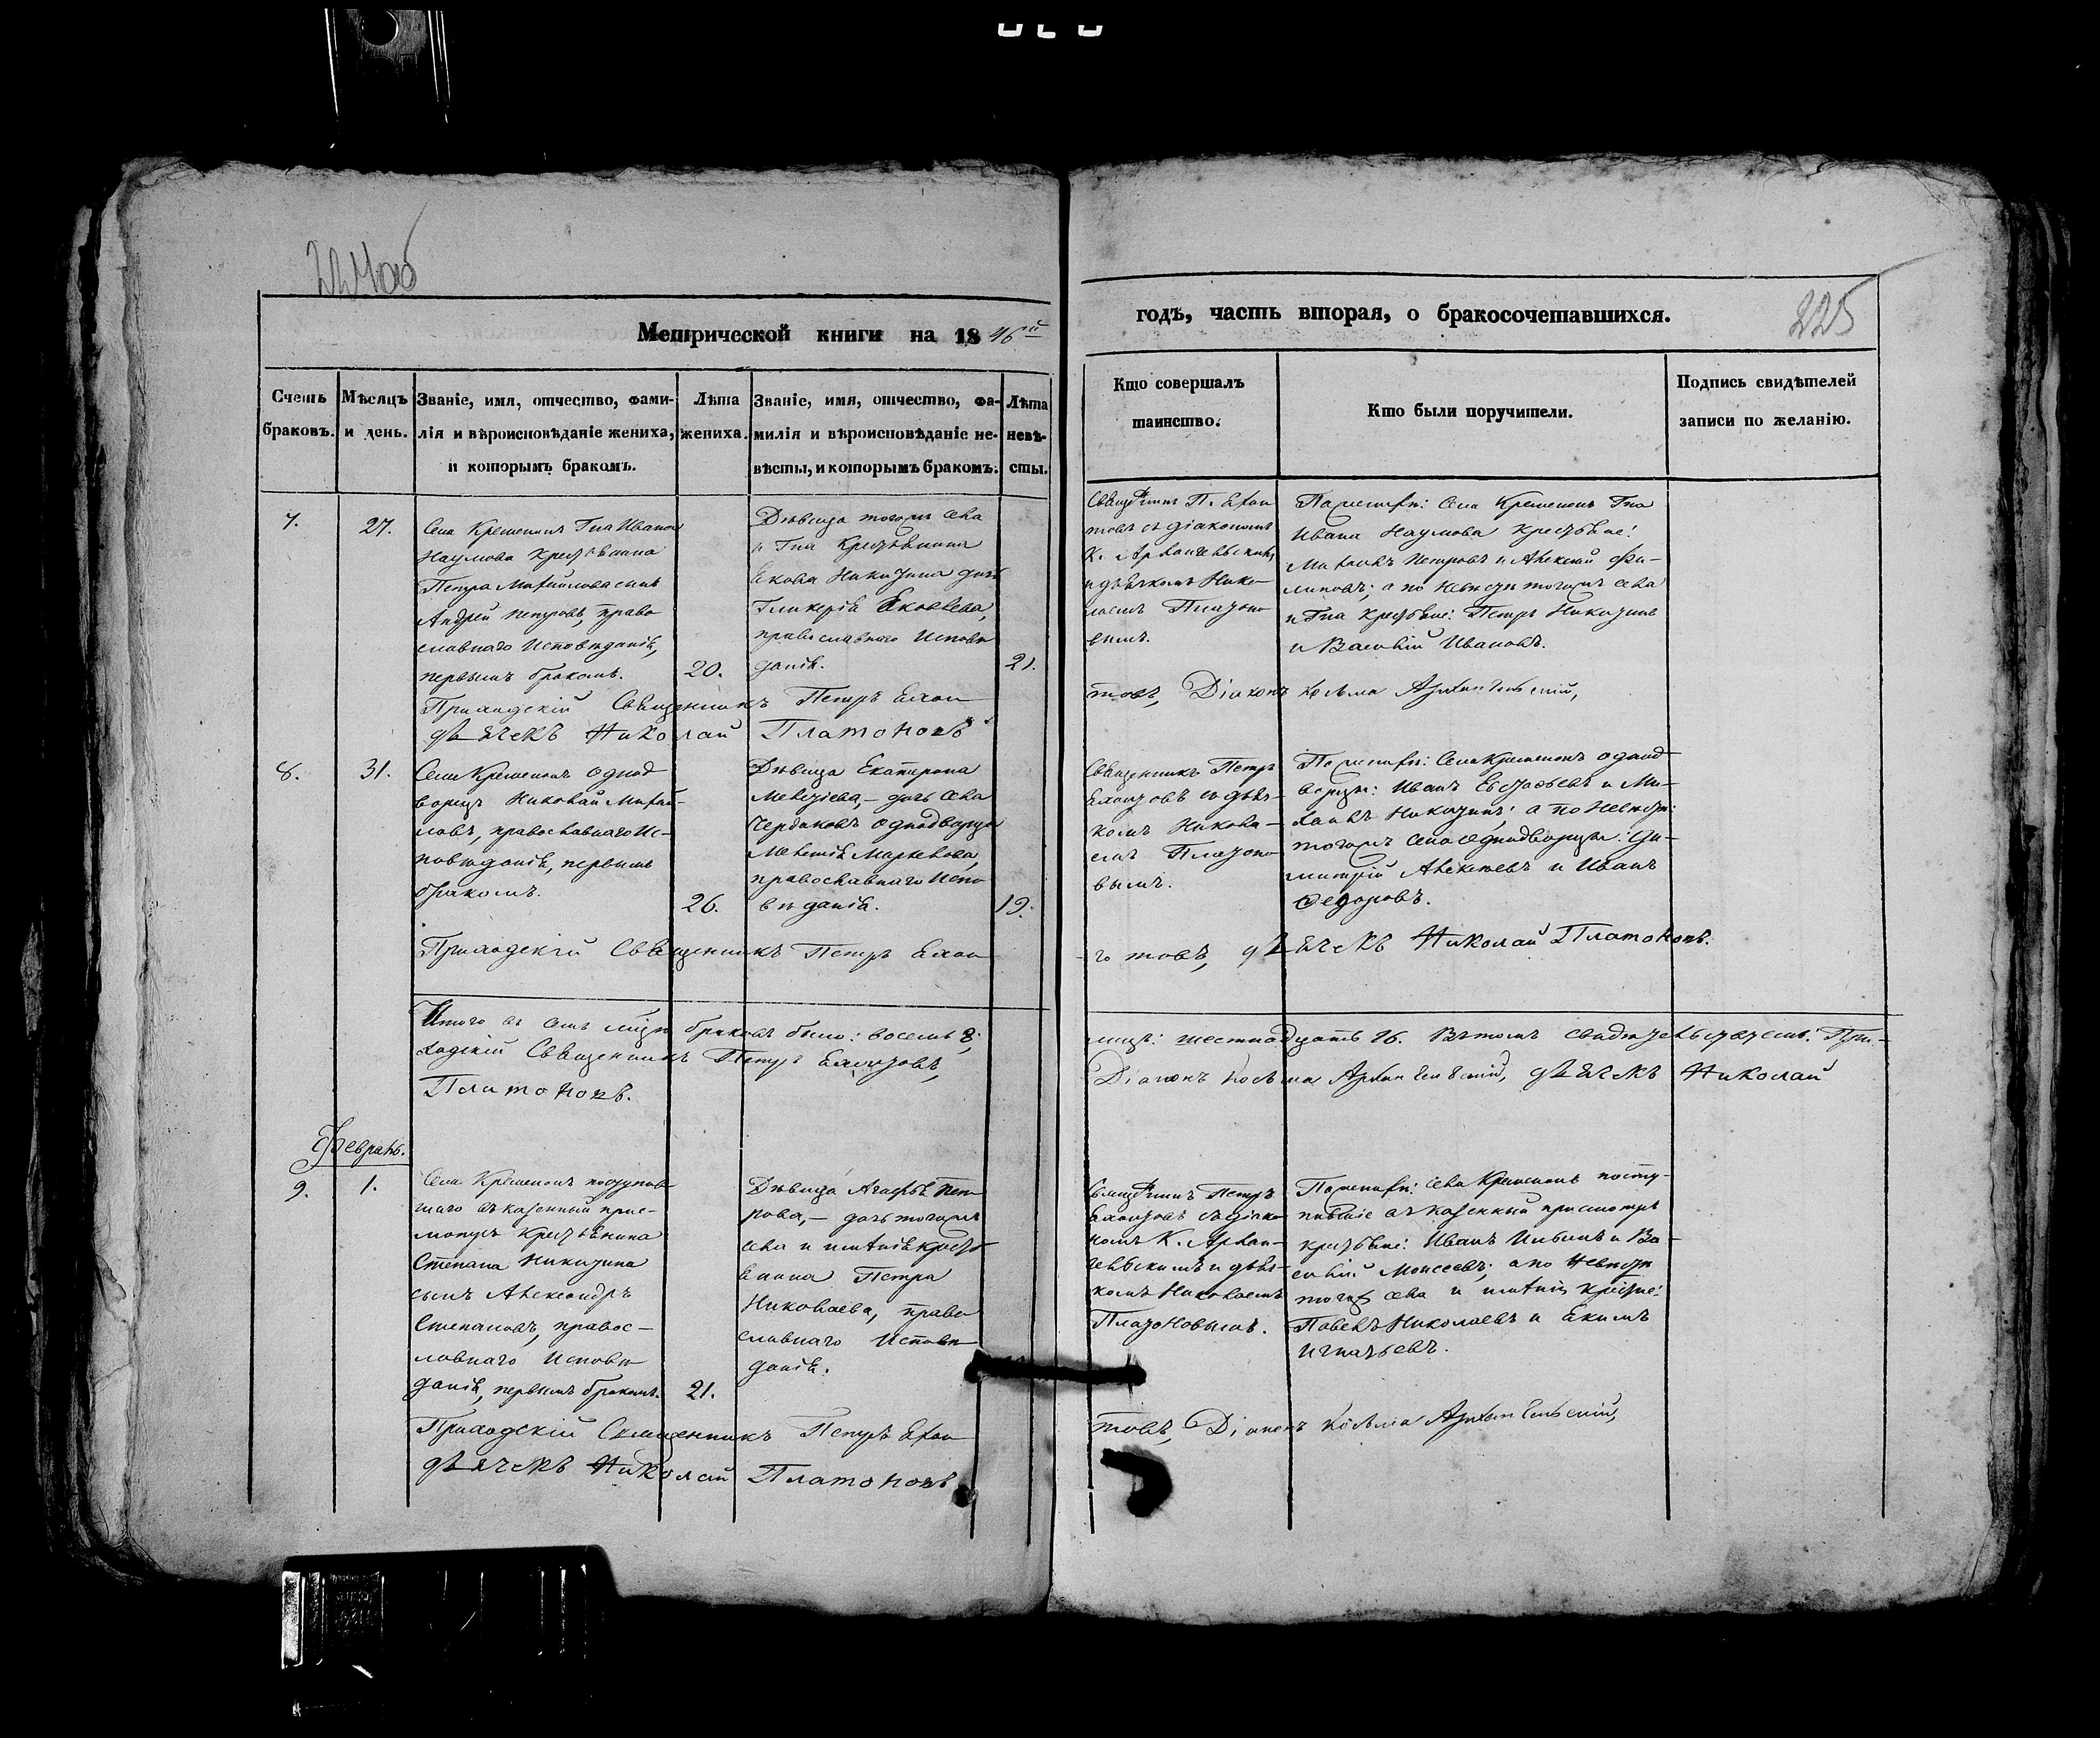 224 об
225
Метрической книги на 1846й
годъ, часть вторая, о бракосочетавшихся.
Счетъ браковъ.
Мѣсяцъ и день.
Званіе, имя, отчество, фами-
лія и вѣроисповѣданіе жениха,
и которымъ бракомъ.
Лѣта
жениха.
Званіе, имя, отчество, фа-
милія и вѣроисповѣданіе не-
вѣсты, и которымъ бракомъ.
Лѣта
невѣ-
сты.
Кто совершалъ
таинство.
Кто были поручители.
Подпись свидѣтелей
записи по желанію.
7.
27.
Села Кременокъ Гна Ивана
Наумова Крестьянина
Петра Михайлова сынъ
Андрей Петровъ, право
славнаго Исповѣданія,
первымъ бракомъ.
20.
Дѣвица тогожъ села
и Гна Крестьянина
Якова Никитина дочь
Гликерія Яковлева,
православнаго Исповѣ
данія.
21.
К. Архангельскимъ
и дьячкомъ Нико-
лаемъ Платоно
вымъ.
Села Кременокъ Гна
Ивана Наумова крестьяне:
Михаилъ Петровъ и Алексей Фи-
липовъ; а по Невѣстѣ тогожъ села
и Гна Крестьяне: Петръ Никитинъ
и Василій Ивановъ.
Приходскій Священникъ Петръ Ехаи
товъ, Діаконъ Косьма Архангельскій,
дьячекъ Николай Платоновъ
8.
31.
Села Кременокъ однод
ворецъ Николай Михай-
ловъ, православнаго Ис-
повѣданія, первымъ
бракомъ.
26.
Дѣвица Екатерина
Мелетіева, – дочь села
Чердаковъ однодворца
Мелетія Маркелова,
православнаго Испо
вѣданія.
19.
Священникъ Петръ
Ехаитовъ съ дьяч-
комъ Никола-
емъ Платоно
вымъ.
Села Кременокъ однод
ворцы: Иванъ Евстафьевъ и Ми-
хаилъ Никитинъ; а по Невѣстѣ:
тогожъ села однодворцы: Ди-
митрій Алексѣевъ и Иванъ
Федоровъ.
Приходскій Священникъ Петръ Ехаи
товъ, дьячекъ Николай Платоновъ.
Итого въ семъ мцѣ браковъ было: восемь 8;
лицъ: шестнадцать 16. Въ томъ свидѣтельствуемъ: При-
ходскій Священникъ Петръ Ехаитовъ,
Діаконъ Косьма Архангельскій, дьячекъ Николай
Платоновъ.
Февраль.
9.
1.
Села Кременокъ поступив
шаго въ казенный прис-
мотръ Крестьянина
Степана Никитина
сынъ Александръ
Степановъ, правос-
лавнаго Исповѣ
данія, первымъ бракомъ.
21.
Дѣвица Агафья Пет
рова, – дочь тогожъ
села и имѣнія крестья
янина Петра
Николаева, право
славнаго Исповѣ
данія.
Петръ
Ехаитовъ съ діако
номъ К. Архан-
гельскимъ и дьяч-
комъ Николаемъ
Платоновымъ.
села Кременокъ посту-
пившіе въ казенный присмотръ
крестьяне: Иванъ Ильинъ и Ва-
силій Моисеевъ; а по Невѣстѣ
тогожъ села и имѣнія
Павелъ Николаевъ и Екимъ
Игнатьевъ.
Приходскій Священникъ Петръ Ехаи
товъ, Діаконъ Косьма Архангельскій,
дьячекъ Николай Платоновъ